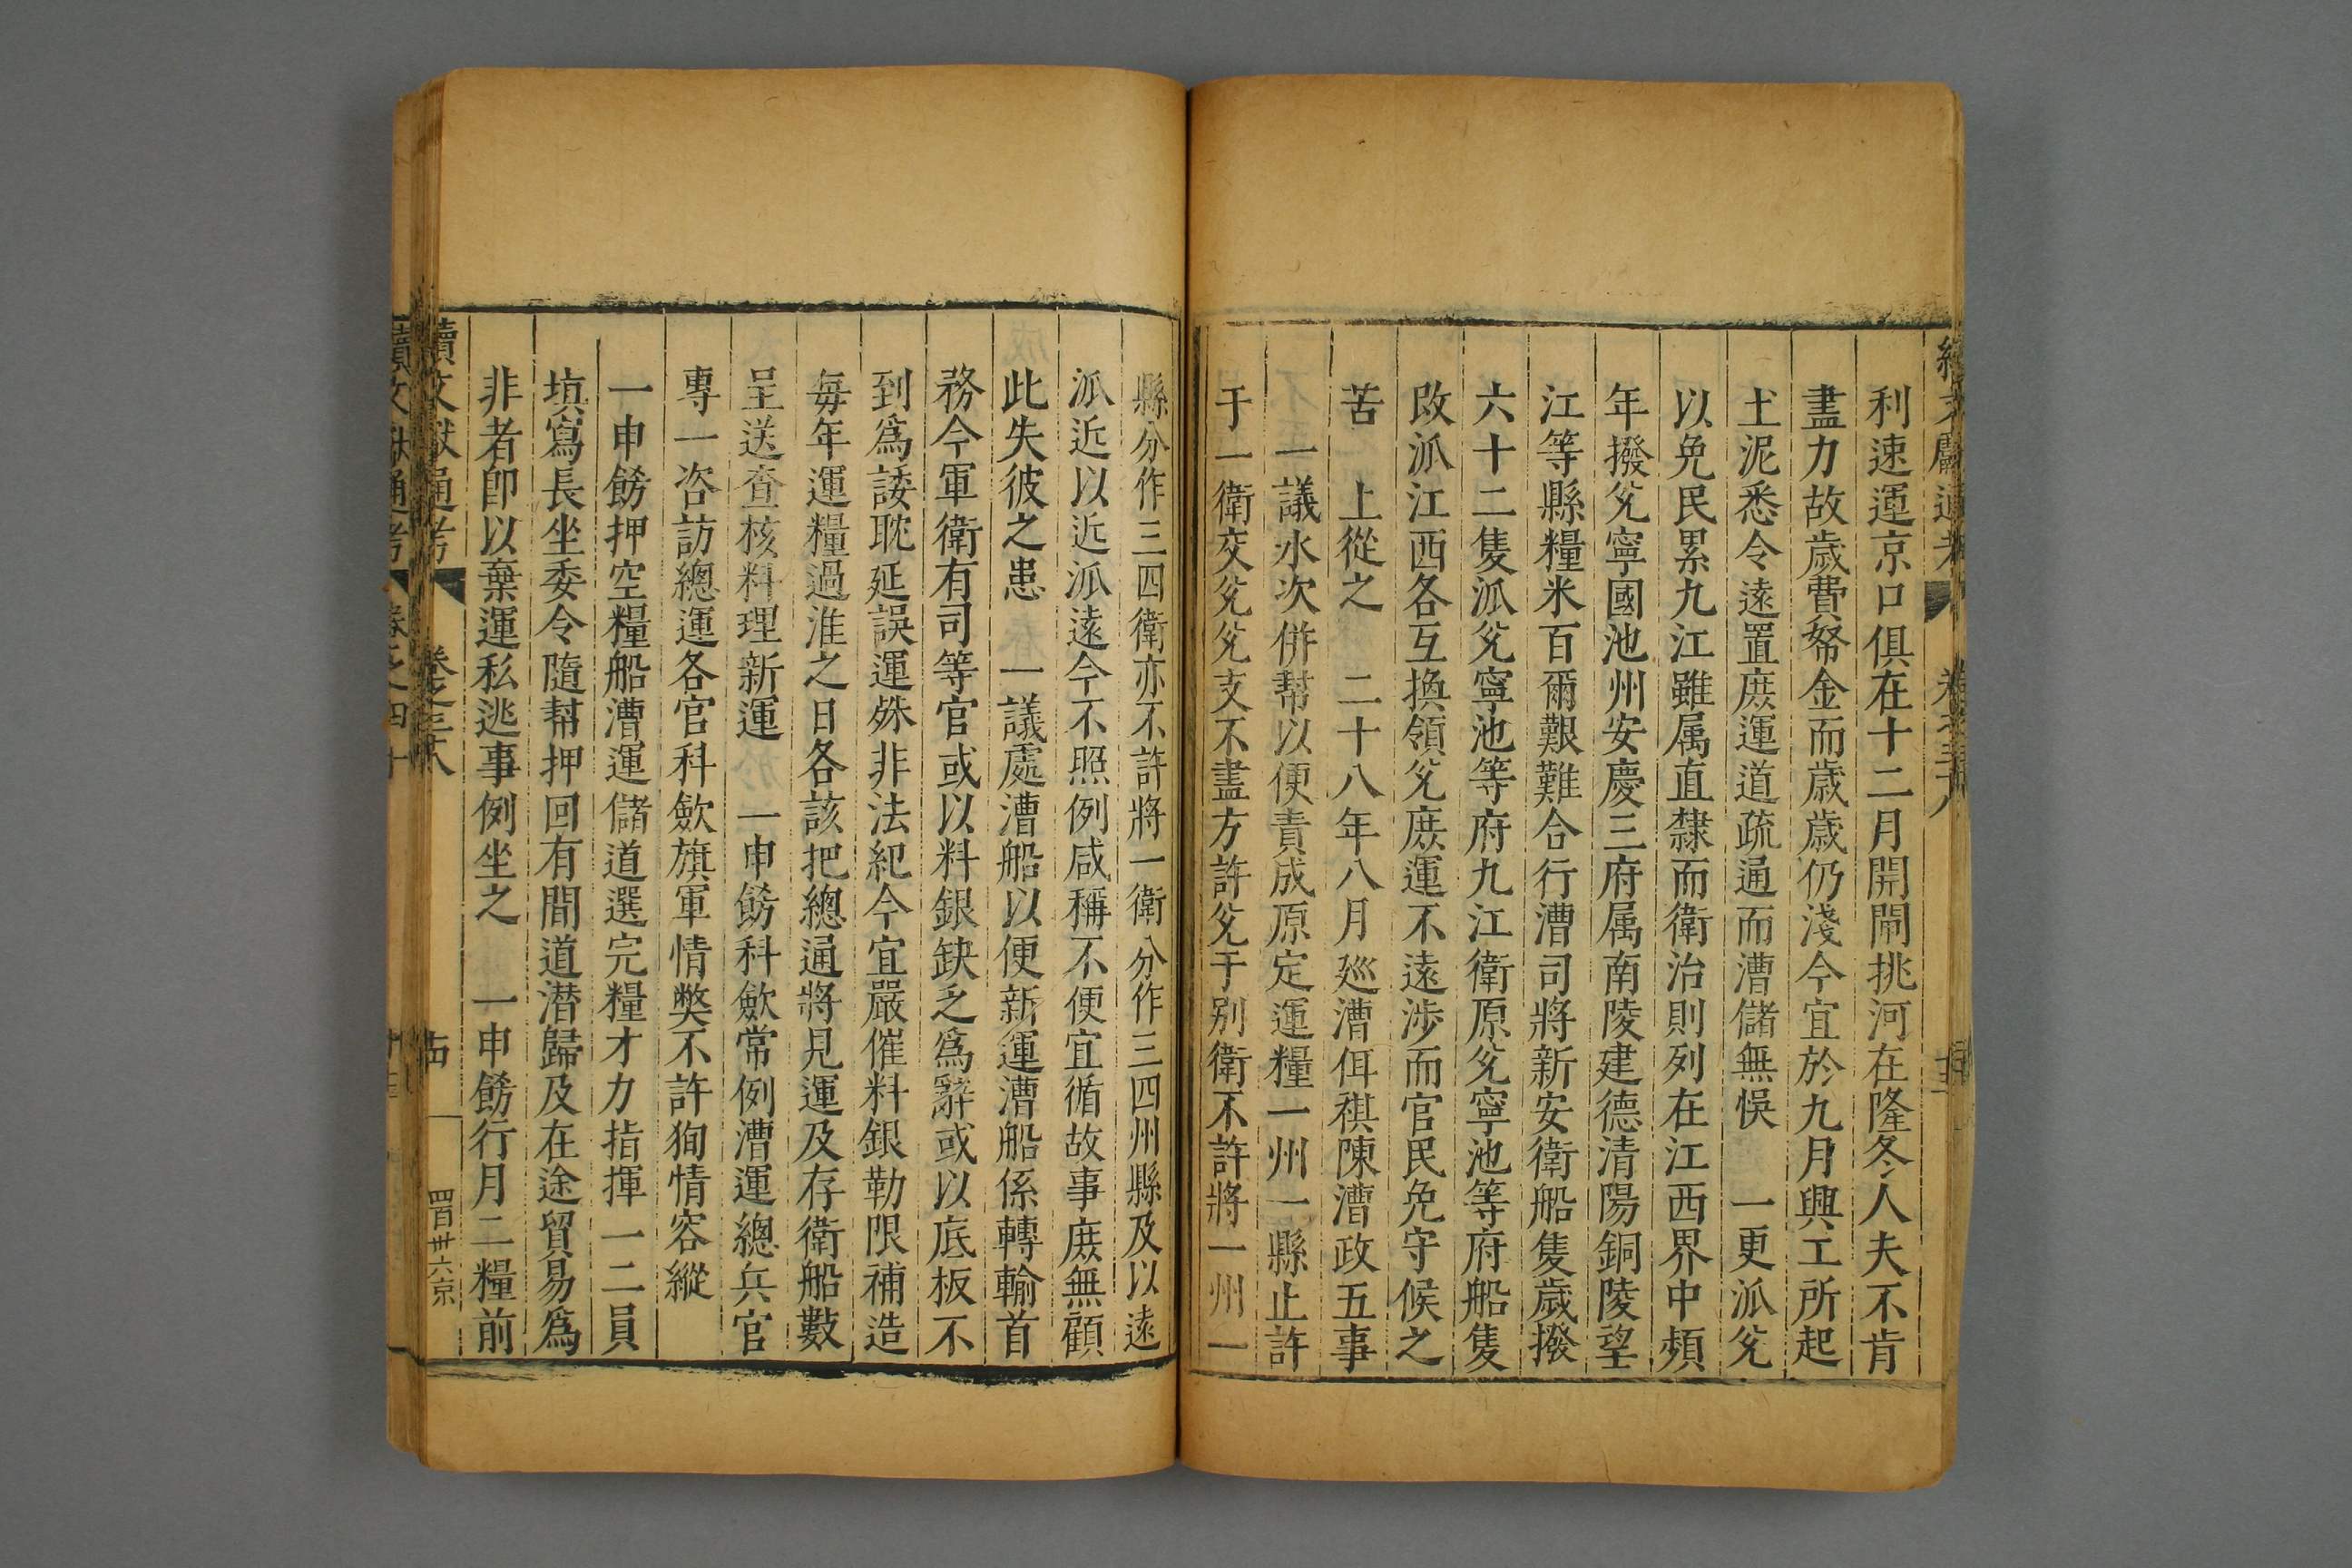 利速運京口俱在十二月開閘挑河在隆冬人夫不肯
盡力故歲費帑金而歲歲仍淺今宜於九月興工所起
土泥悉令遠置庻運道疏通而漕儲無悞　一更派兊
以免民累九江雖属直隸而衛治則列在江西界中頻
年撥兊寧國池州安慶三府属南陵建德清陽銅陵望
江等縣糧米百爾艱難合行漕司將新安衛船隻歲撥
六十二隻派兊寧池等府九江衛原兊寧池等府船隻
改派江西各互換領兊庻運不遠涉而官民免守候之
苦　上從之　二十八年八月廵漕佴祺陳漕政五事
一議水次併幫以便責成原定運糧一州一縣止許
于一衛交兊兊支不盡方許兊于别衛不許將一州一
縣分作三四衛亦不許將一衛分作三四州縣及以遠
派近以近派遠今不照例咸稱不便宜循故事庻無顧
此失彼之患　一議處漕船以便新運漕船係轉輸首
務今軍衛有司等官或以料銀缺乏爲辭或以底板不
到爲諉耽延誤運殊非法紀今宜嚴催料銀勒限補造
每年運糧過淮之日各該把總通將見運及存衛船數
呈送查核料理新運　一申飭科歛常例漕運總兵官
專一咨訪總運各官科歛旗軍情獘不許狥情容縱
一申飭押空糧船漕運儲道選完糧才力指揮一二員
填寫長坐委令隨幇押回有間道潜歸及在途貿易爲
非者卽以棄運私逃事例坐之　一申飭行月二糧前
續文獻通考　卷之三十八
四百卅六京